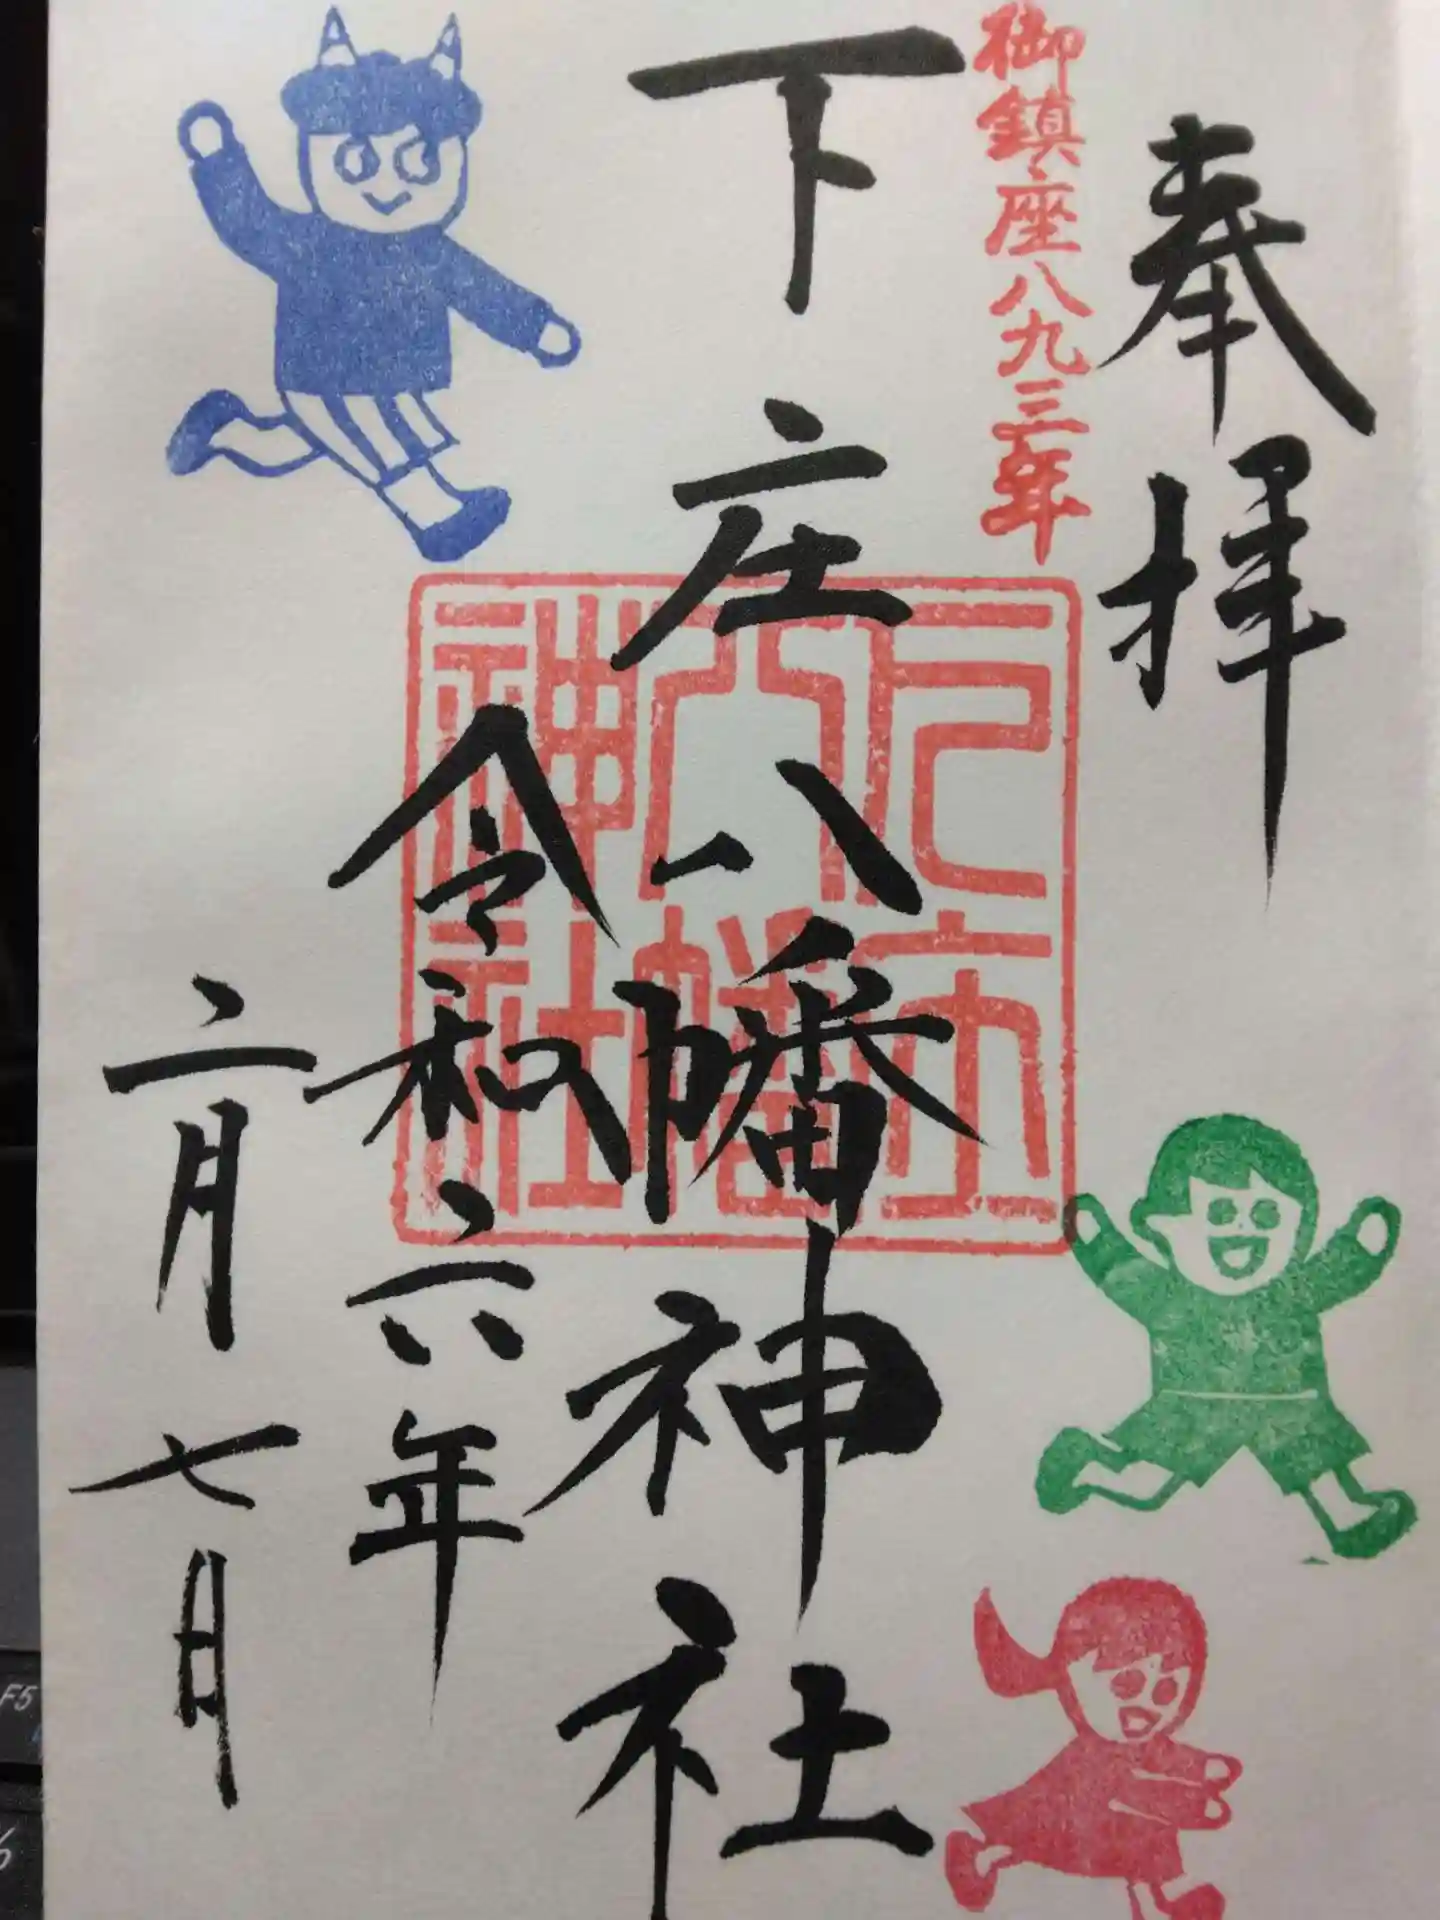 奉拝
御鎮座八九三年
下庄八幡神社
八幡
神社
令和六年
二月七日
F5